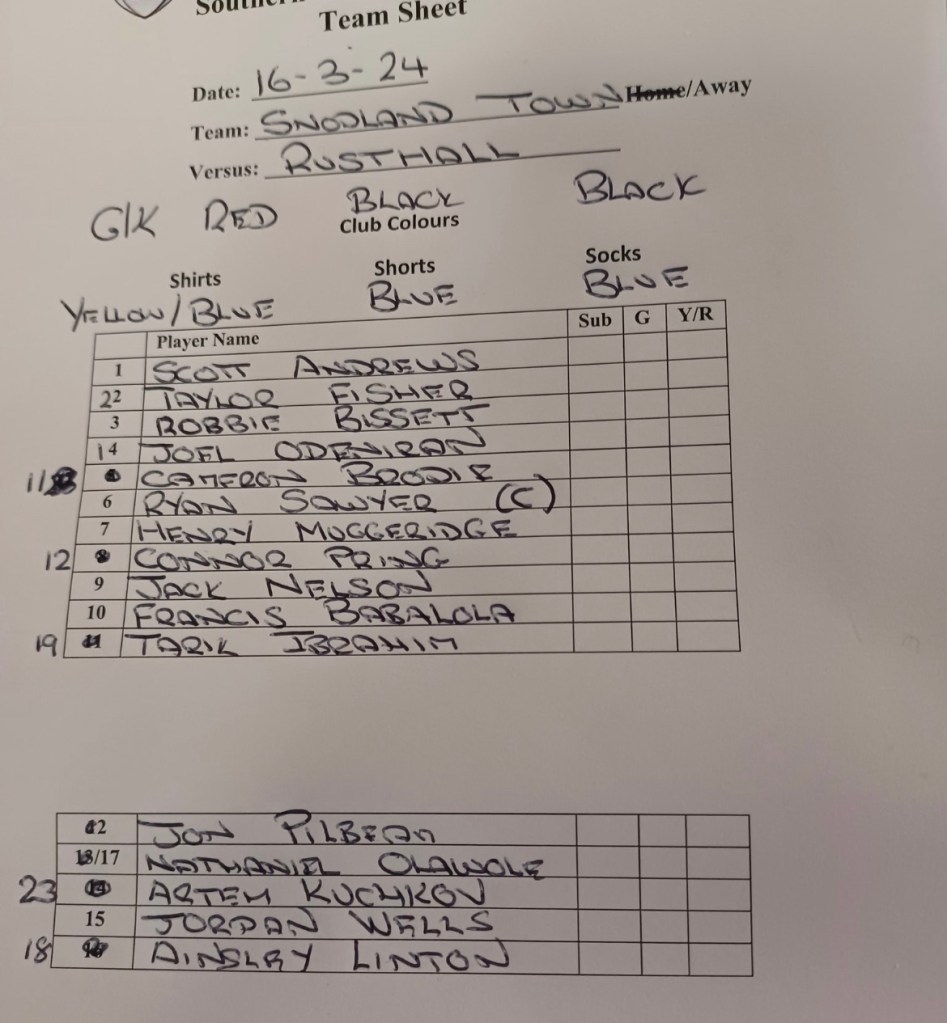 Southern
Team Sheet
Date: 16-3-24
Team: SNODLAND TOWN Home/Away
Versus: RUSTHALL
G/K RED BLACK BLACK
Club Colours
Shirts Shorts Socks
YELLOW/BLUE BLUE BLUE
Player Name Sub G Y/R
1 SCOTT ANDREWS
22 TAYLOR FISHER
3 ROBBIE BISSETT
14 JOEL ODENIRAN
11 CAMERON BRODIE
6 RYAN SAWYER (C)
7 HENRY MUGGERIDGE
12 CONNOR PRING
9 JACK NELSON
10 FRANCIS BABALOLA
19 TARIK IBRAHIM
2 JON PILBEAM
/17 NATHANIEL OLAWOLE
23 ARTEM KUCHKOV
15 JORDAN WELLS
18 AINSLEY LINTON